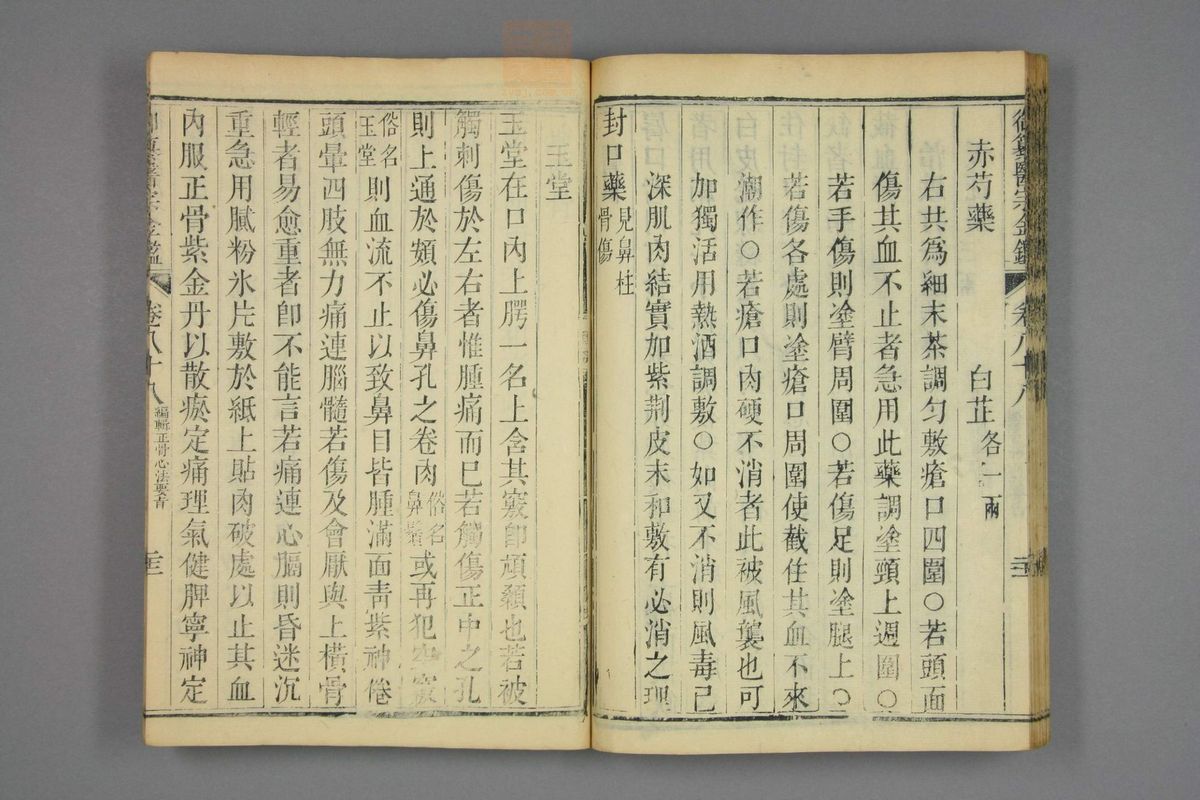 御纂醫宗金鑑　卷八十八
赤芍藥　白芷各一兩
右共為細末茶調勻敷瘡口四圍○若頭面
傷其血不止者急用此藥調塗頸上週圍○
若手傷則塗臂周圍○若傷足則塗腿上○
若傷各處則塗瘡口周圍使截住其血不來
潮作○若瘡口肉硬不消者此被風襲也可
加獨活用熱酒調敷○如又不消則風毒已
深肌肉結實加紫荆皮末和敷有必消之理
封口藥見鼻柱骨傷
玉堂
玉堂在口內上腭一名上含其竅卽頏顙也若被
觸刺傷於左右者惟腫痛而已若觸傷正中之孔
則上通於頞必傷鼻孔之卷肉俗名鼻鬚或再犯空竅
俗名玉堂則血流不止以致鼻目皆腫滿面靑紫神倦
頭暈四肢無力痛連腦髓若傷及會厭與上橫骨
輕者易愈重者卽不能言若痛連心膈則昏迷沉
重急用膩粉氷片敷於紙上貼肉破處以止其血
內服正骨紫金丹以散瘀定痛理氣健脾寧神定
醫宗金鑑　卷八十八　編輯正骨心法要旨